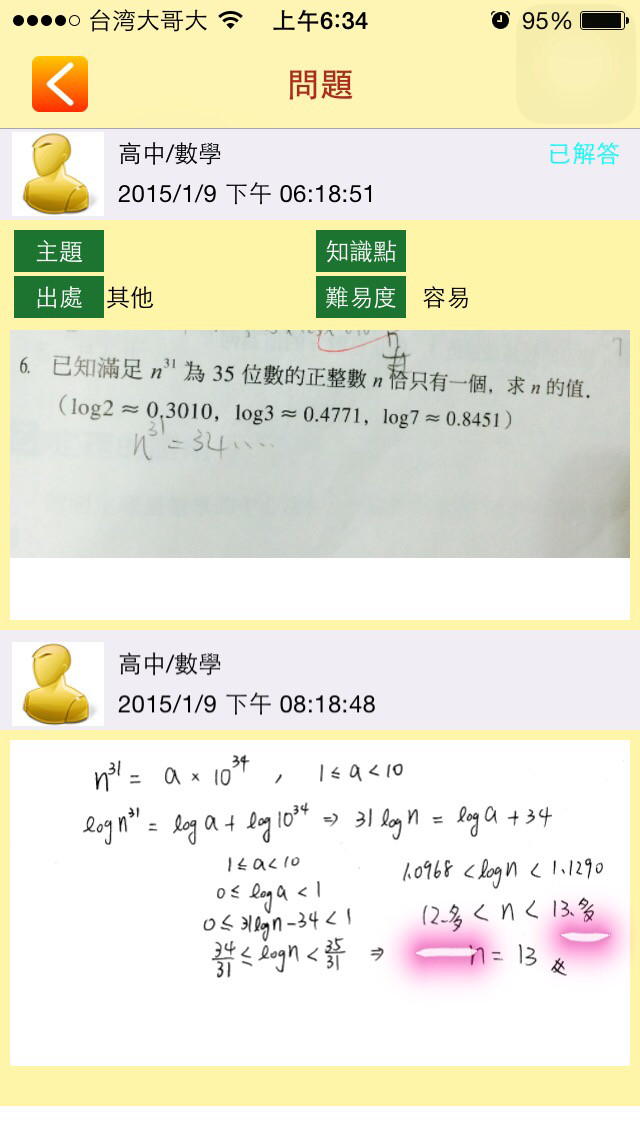 台湾大哥大 上午6:34 95%
問題
高中/數學 已解答
2015/1/9 下午 06:18:51
主題 知識點
出處 其他 難易度 容易
6. 已知滿足 n³¹ 為 35 位數的正整數 n 恰只有一個，求 n 的值．
（log2 ≈ 0.3010，log3 ≈ 0.4771，log7 ≈ 0.8451）
n³¹ = 34 ....
高中/數學
2015/1/9 下午 08:18:48
n³¹ = a × 10³⁴ , 1 ≤ a < 10
log n³¹ = log a + log 10³⁴ ⇒ 31 log n = log a + 34
1 ≤ a < 10
0 ≤ log a < 1
0 ≤ 31 log n - 34 < 1
34/31 ≤ log n < 35/31 ⇒
1.0968 < log n < 1.1290
12.多 < n < 13.多
n = 13